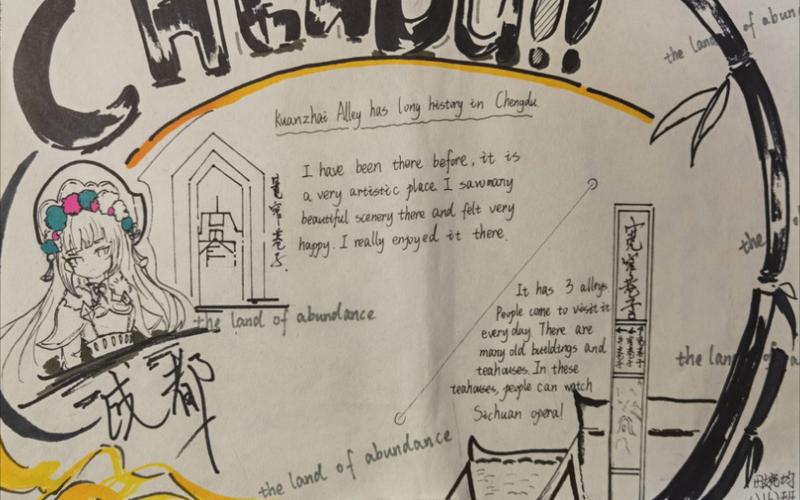 CHENGDU!!
the land of abun
Kuanzhai Alley has long history in Chengdu.
I have been there before, it is
a very artistic place. I saw many
beautiful scenery there and felt very
happy. I really enjoyed it there.
宽窄巷子
the
the land of abundance
成都
It has 3 alleys.
People come to visit it
everyday. There are
many old buildings and
teahouses. In these
teahouses, people can watch
Sichuan opera!
宽窄巷子
the land of a
the land of abundance